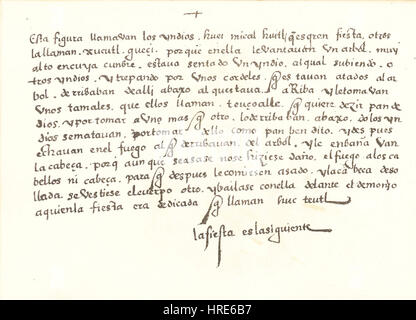 Esta figura llamavan los yndios. huei mical huitl, que es gren fiesta, otros
la llaman. xucutl. gueçi. por que en ella levantavan vn arbol. muy
alto en cuya cunbre. estava sentado vn yndio, al qual subiendo. o
tros yndios. y trepando por vnos cordeles. que estavan atados al ar
bol. derribaban de alli abaxo al que tava. aRiba y le tomavan
vnos tamales, que ellos llaman. teuçoalle. que quiere dezir pan de
dios. y por tomar a vno mas que otro. lo derribaban. abaxo. a los yn
dios se matavan. por tomar dello como pan bendito. y despues
echavan en el fuego al que derrubavan. del arbol. y le enbaña van
la cabeça. por que aun que se asase no se hiziese daño. el fuego a los ca
bellos ni cabeça. para que despues le comiesen asado. y la cabeça deso
llada. se vestiese el cuerpo otro. y bailase con ella delante el demonyo
a quien la fiesta era dedicada que llaman huic teutl
la fiesta es la siguiente
alamy
Image ID: HRE6B7
www.alamy.com